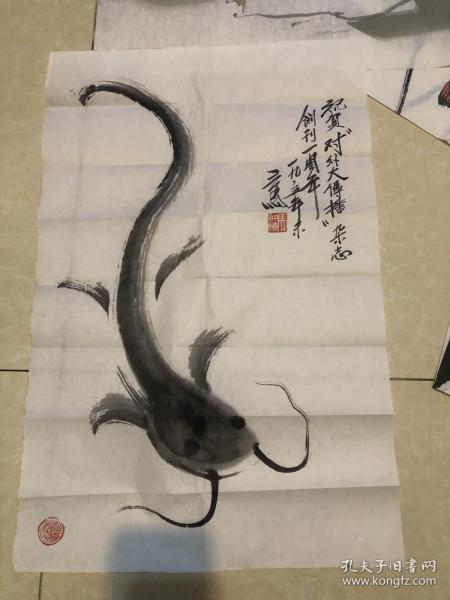 祝贺"对外大传播"杂志
創刊一周年
一九九五年末
孔夫子旧书网
www.kongfz.com